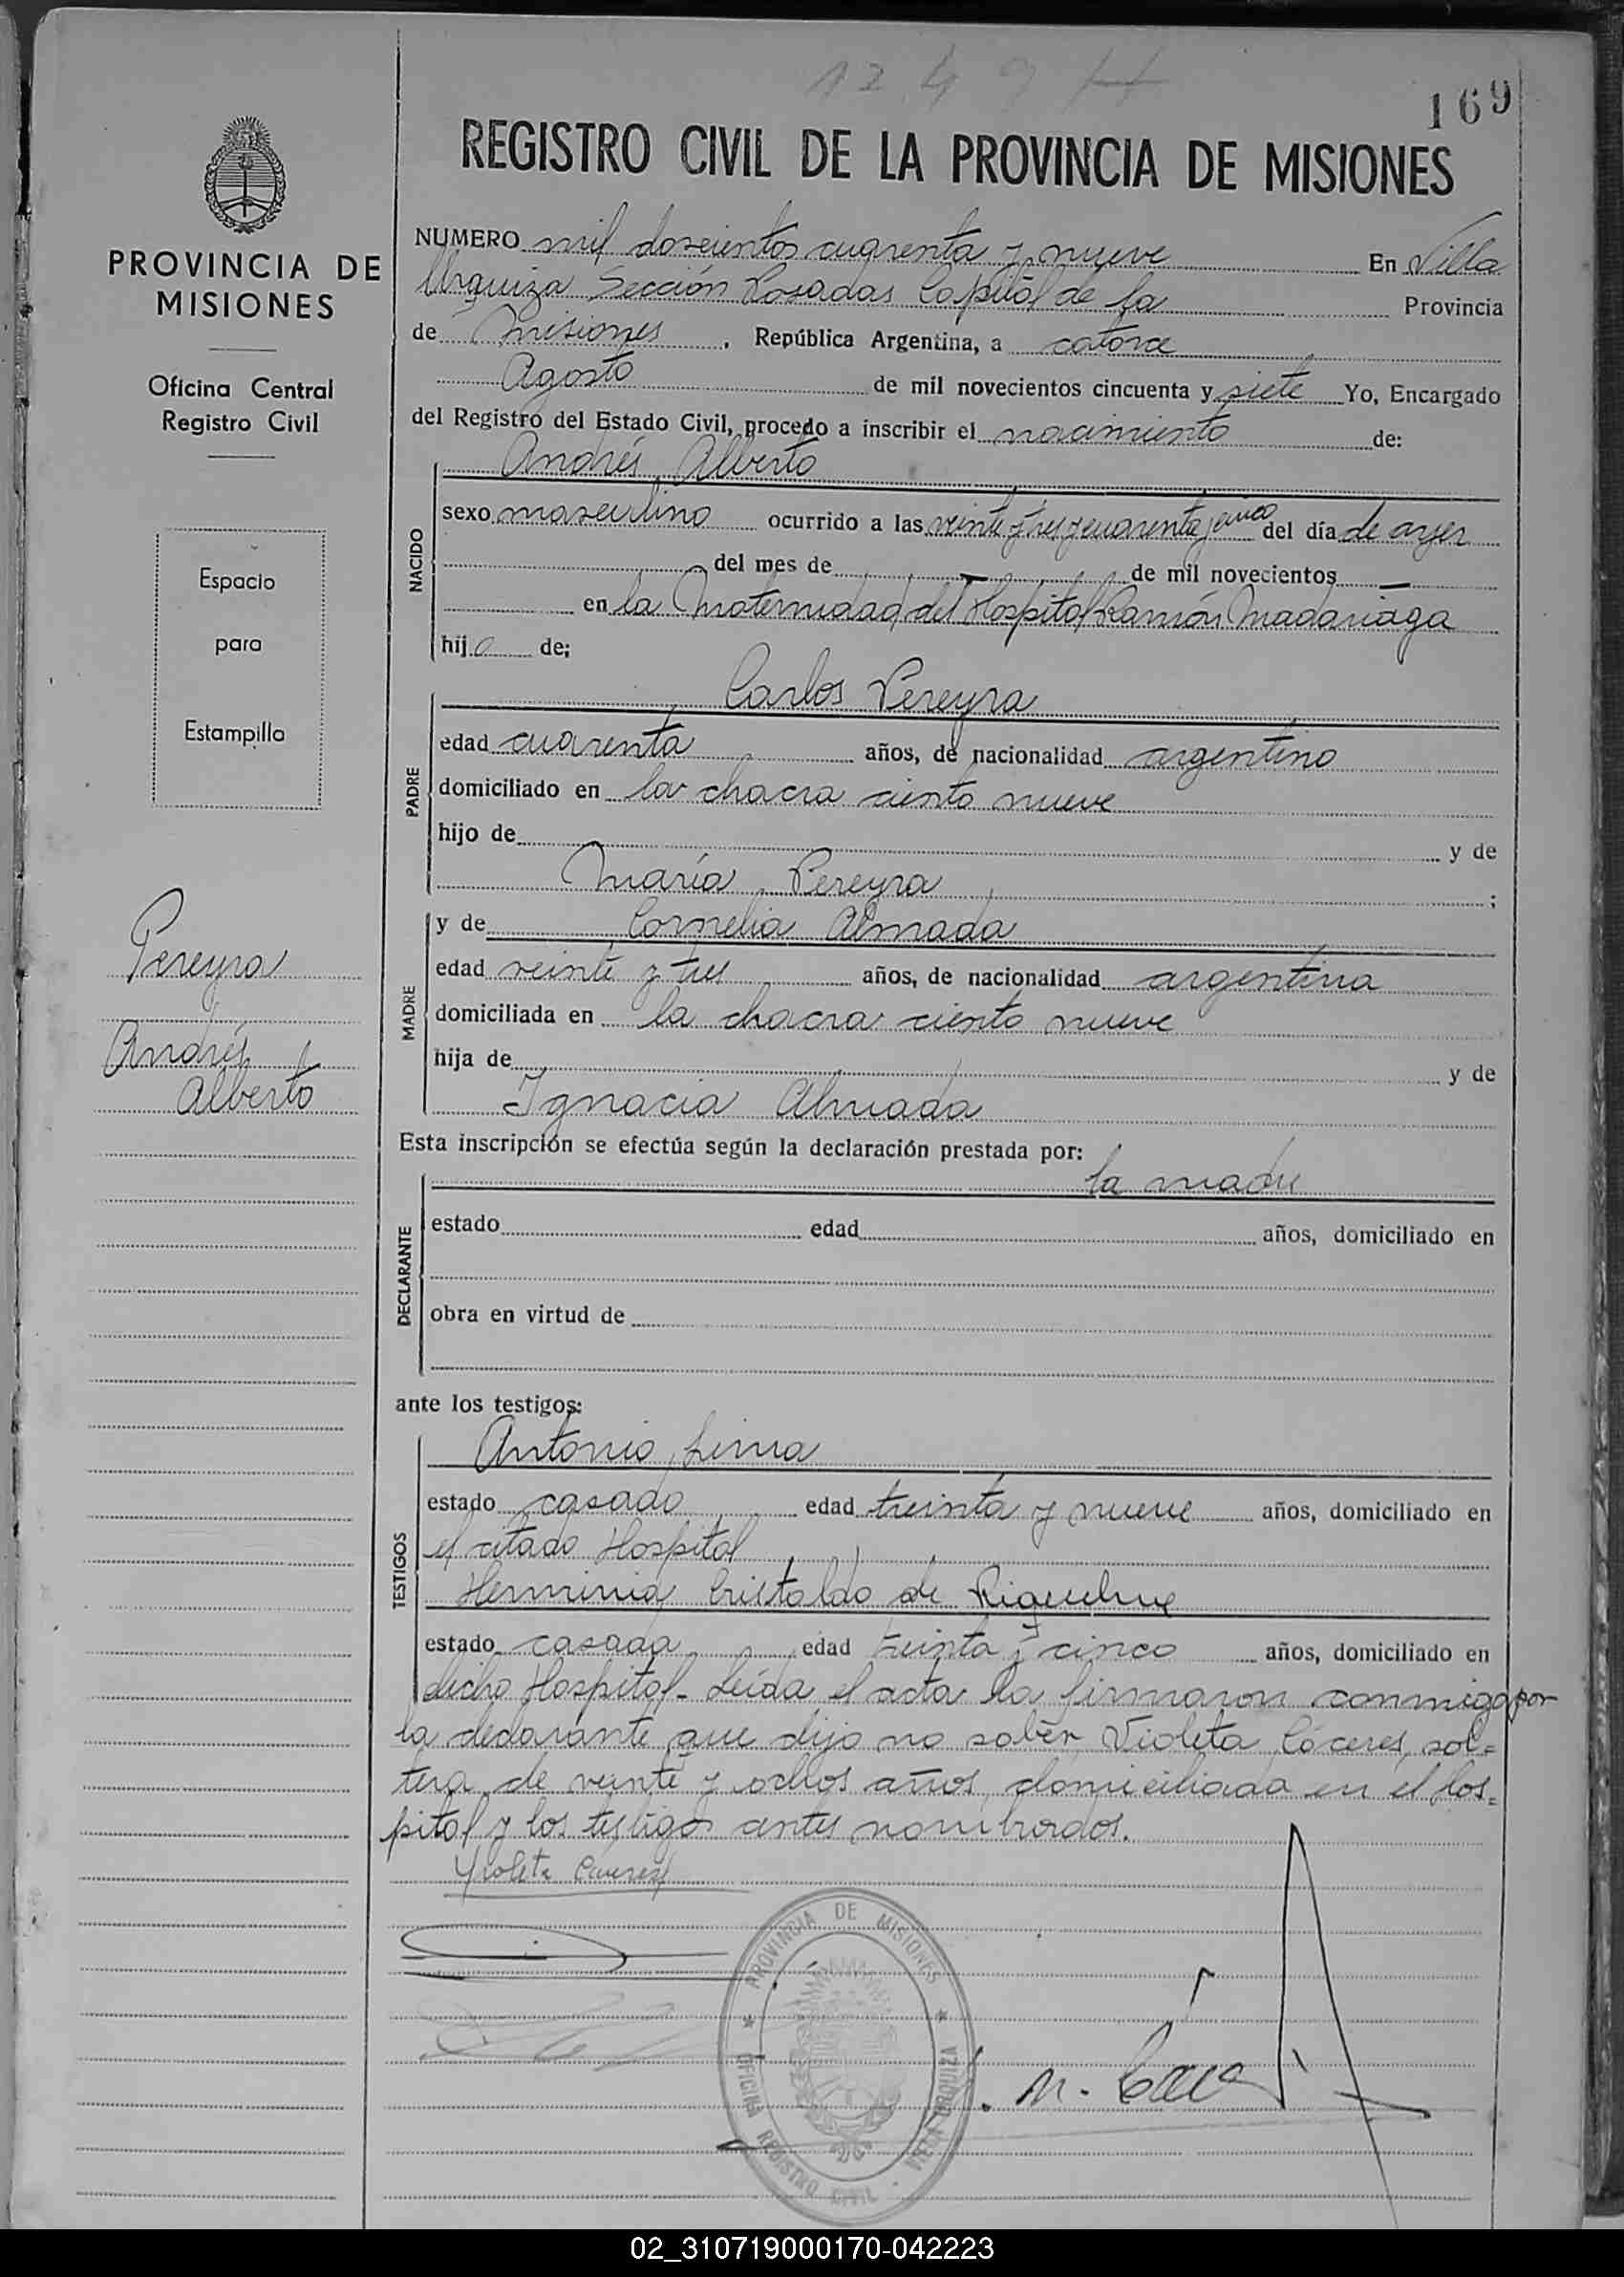 1249 H
169
REGISTRO CIVIL DE LA PROVINCIA DE MISIONES
PROVINCIA DE
MISIONES
Oficina Central
Registro Civil
Espacio
para
Estampilla
Pereyra
Andrés
Alberto
NUMERO mil doscientos cuarenta y nueve En Villa
Urquiza Sección Posadas Capital de la Provincia
de Misiones, República Argentina, a catorce
Agosto de mil novecientos cincuenta y siete Yo, Encargado
del Registro del Estado Civil, procedo a inscribir el nacimiento de:
Andrés Alberto
NACIDO
sexo masculino ocurrido a las veinte y tres y cuarenta y cinco del día de ayer
del mes de — de mil novecientos —
en la Maternidad del Hospital Ramón Madariaga
hijo de:
Carlos Pereyra
PADRE
edad cuarenta años, de nacionalidad argentino
domiciliado en la chacra ciento nueve
hijo de y de
María Pereyra ;
MADRE
y de Cornelia Almada
edad veinte y tres años, de nacionalidad argentina
domiciliada en la chacra ciento nueve
hija de y de
Ignacia Almada
Esta inscripción se efectúa según la declaración prestada por:
la madre
DECLARANTE
estado edad años, domiciliado en
obra en virtud de
ante los testigos:
Antonio Lima
TESTIGOS
estado casado edad treinta y nueve años, domiciliado en
el citado Hospital
Herminia Cristaldo de Riquelme
estado casada edad treinta y cinco años, domiciliado en
dicho Hospital- Leída el acta la firmaron conmigo por
la declarante que dijo no saber Violeta Cáceres, sol=
tera, de veinte y ochos años, domiciliada en el Hos=
pital y los testigos antes nombrados.
Violeta Caceres
PROVINCIA DE MISIONES
OFICINA REGISTRO CIVIL · VILLA URQUIZA
02_310719000170-042223